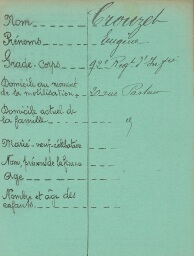 Nom Crouzet
Prénoms Eugène
Grade-Corps 92e Regt d'Inf
Domicile au moment
de la mobilisation
Domicile actuel de
la famille
Marié-veuf-célibataire
Nom, prénoms de la femme
Age
Nombre et âge des
enfants